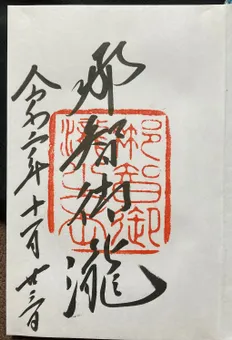 那智御瀧
令和六年十一月廿三日
那智御